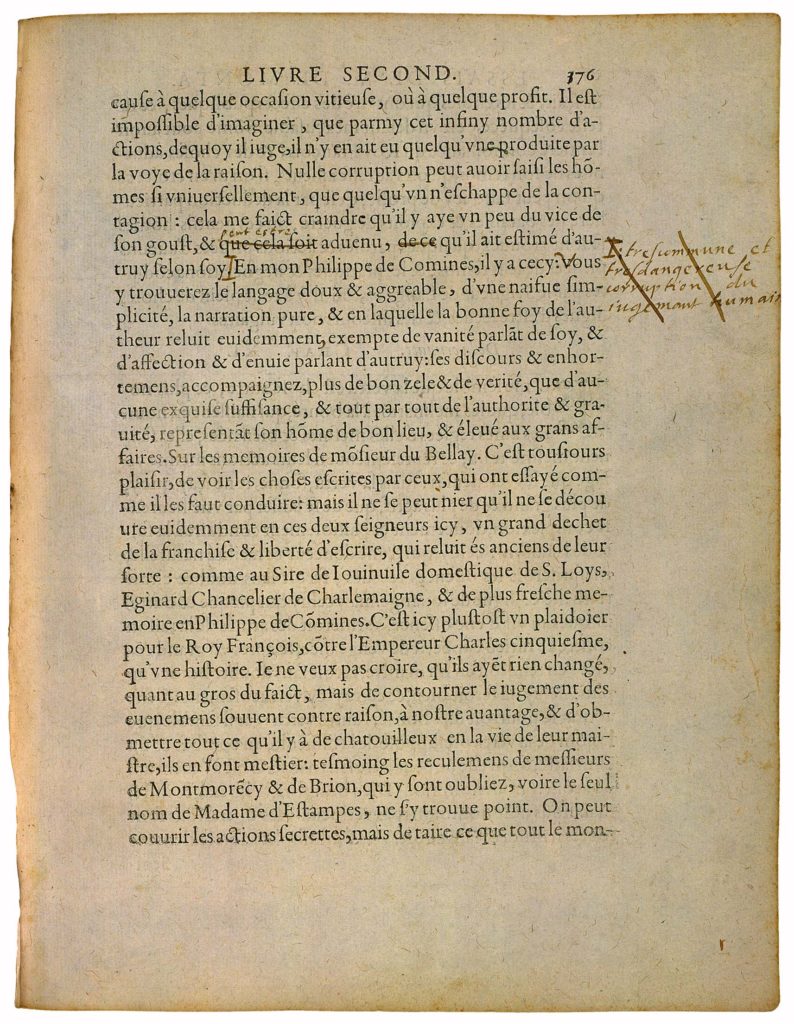 LIVRE SECOND. 376
cauſe à quelque occaſion vitieuſe, où à quelque profit. Il eſt
impoſſible d'imaginer, que parmy cet infiny nombre d'a-
ctions, dequoy il iuge, il n'y en ait eu quelqu'vne produite par
la voye de la raiſon. Nulle corruption peut auoir ſaiſi les hõ-
mes ſi vniuerſellement, que quelqu'vn n'eſchappe de la con-
tagion : cela me faict craindre qu'il y aye vn peu du vice de
peut estre
ſon gouſt, & que cela ſoit aduenu, de ce qu'il ait eſtimé d'au-
truy ſelon ſoy. En mon Philippe de Comines, il y a cecy: Vous
y trouuerez le langage doux & aggreable, d'vne naifue ſim-
plicité, la narration pure, & en laquelle la bonne foy de l'au-
theur reluit euidemment, exempte de vanité parlãt de ſoy, &
d'affection & d'enuie parlant d'autruy: ſes diſcours & enhor-
temens, accompaignez, plus de bon zele & de verité, que d'au-
cune exquiſe ſuffiſance, & tout par tout de l'authorite & gra-
uité, repreſentãt ſon hõme de bon lieu, & éleué aux grans af-
faires. Sur les memoires de mõſieur du Bellay. C'eſt touſiours
plaiſir, de voir les choſes eſcrites par ceux, qui ont eſſayé com-
me il les faut conduire: mais il ne ſe peut nier qu'il ne ſe décou
ure euidemment en ces deux ſeigneurs icy, vn grand dechet
de la franchiſe & liberté d'eſcrire, qui reluit és anciens de leur
ſorte : comme au Sire de Iouinuile domeſtique de S. Loys,
Eginard Chancelier de Charlemaigne, & de plus freſche me-
moire en Philippe de Cõmines. C'eſt icy pluſtoſt vn plaidoier
pour le Roy François, cõtre l'Empereur Charles cinquieſme,
qu'vne hiſtoire. Ie ne veux pas croire, qu'ils ayẽt rien changé,
quant au gros du faict, mais de contourner le iugement des
euenemens ſouuent contre raiſon, à noſtre auantage, & d'ob-
mettre tout ce qu'il y à de chatouilleux en la vie de leur mai-
ſtre, ils en font meſtier: teſmoing les reculemens de meſſieurs
de Montmorẽcy & de Brion, qui y ſont oubliez, voire le ſeul
nom de Madame d'Eſtampes, ne ſ'y trouue point. On peut
couurir les actions ſecrettes, mais de taire ce que tout le mon-
trescommune et
tresdangereuse
corruption du
iugemant humain